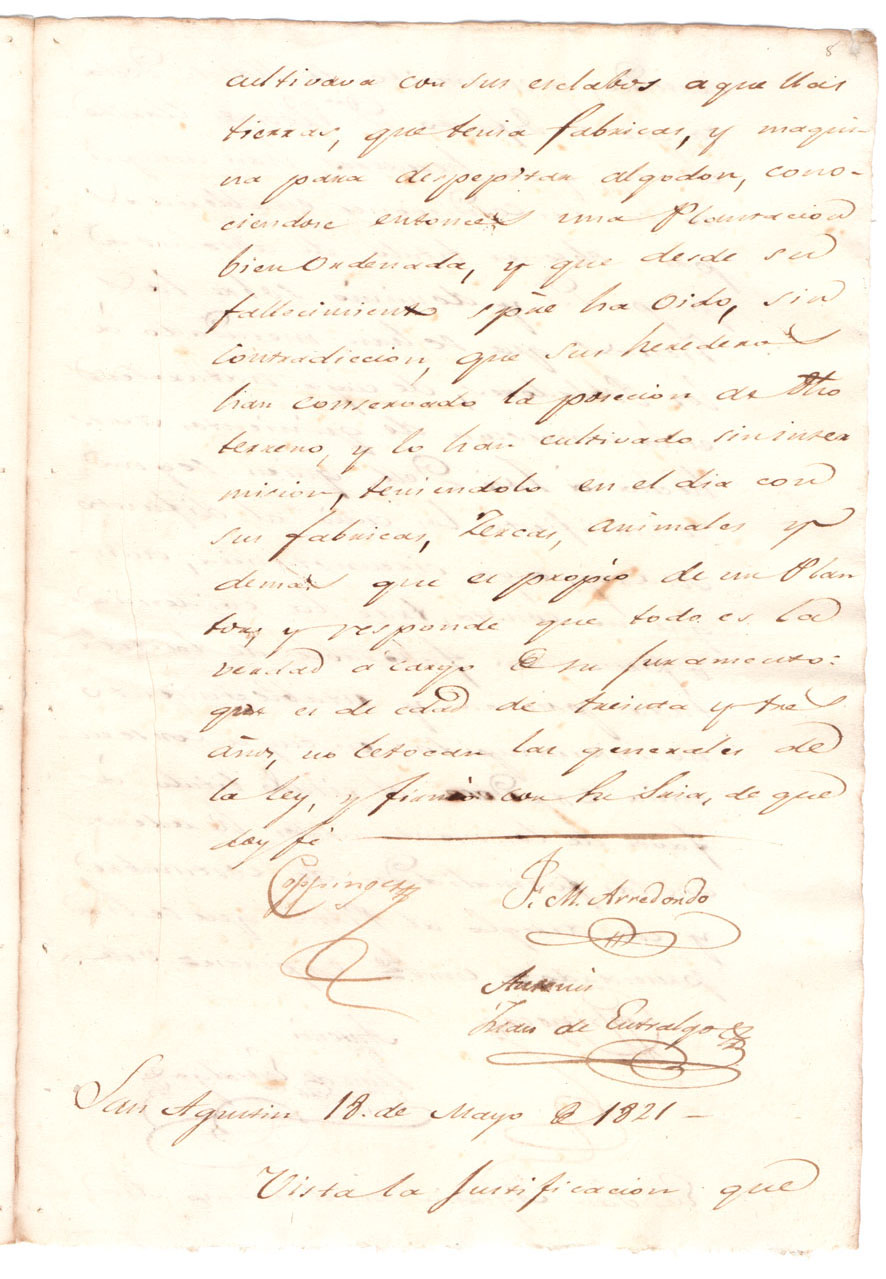 8
cultivava con sus esclabos aquellas
tierras, que tenia fabricas, y maqui-
na para despepitar algodon, cono-
ciendose entonces una Plantacion
bien Ordenada, y que desde su
fallecimiento spre ha oido, sin
contradiccion, que sus herederos
han conservado la posecion de dho
terreno, y lo han cultivado sin inter
mision, teniendolo en el dia con
sus fabricas, Zercas, animales y
demas que es propio de un Plan
tor, y responde que todo es la
verdad á cargo de su juramento:
que es de edad de treinta y tres
años, no le tocan las generales de
la ley, y firmó con su Sria, de que
doy fé
Coppinger
F. M. Arredondo
Ante mi
Juan de Entralgo
San Agustin 18. de Mayo de 1821-
Vista la Justificacion que